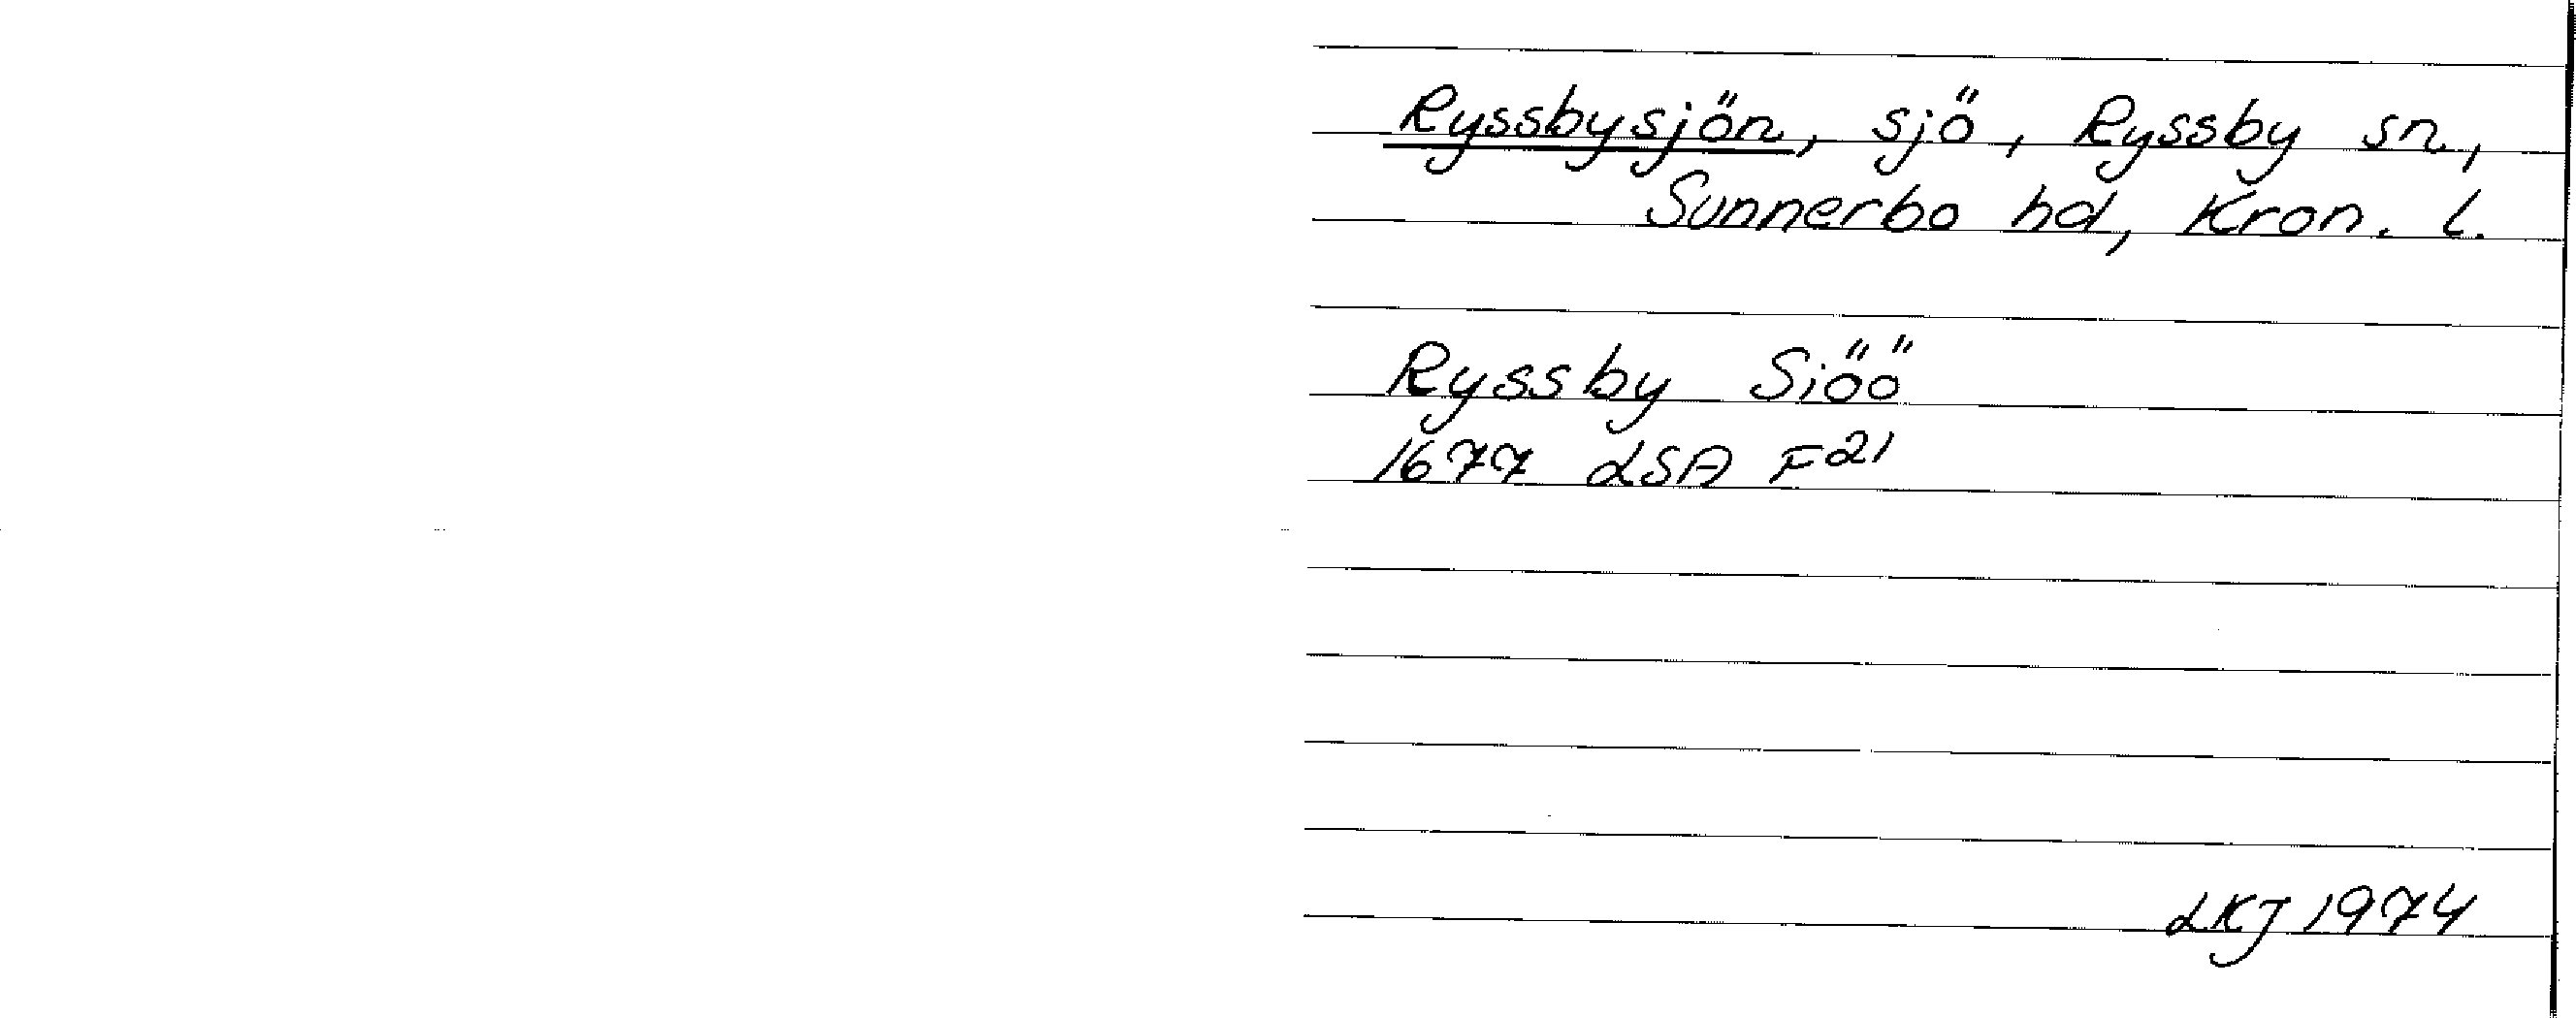 Ryssbysjön, sjö, Ryssby sn,
Sunnerbo hd, Kron. l.
Ryssby Siöö
1677 LSA F21
LKJ 1974